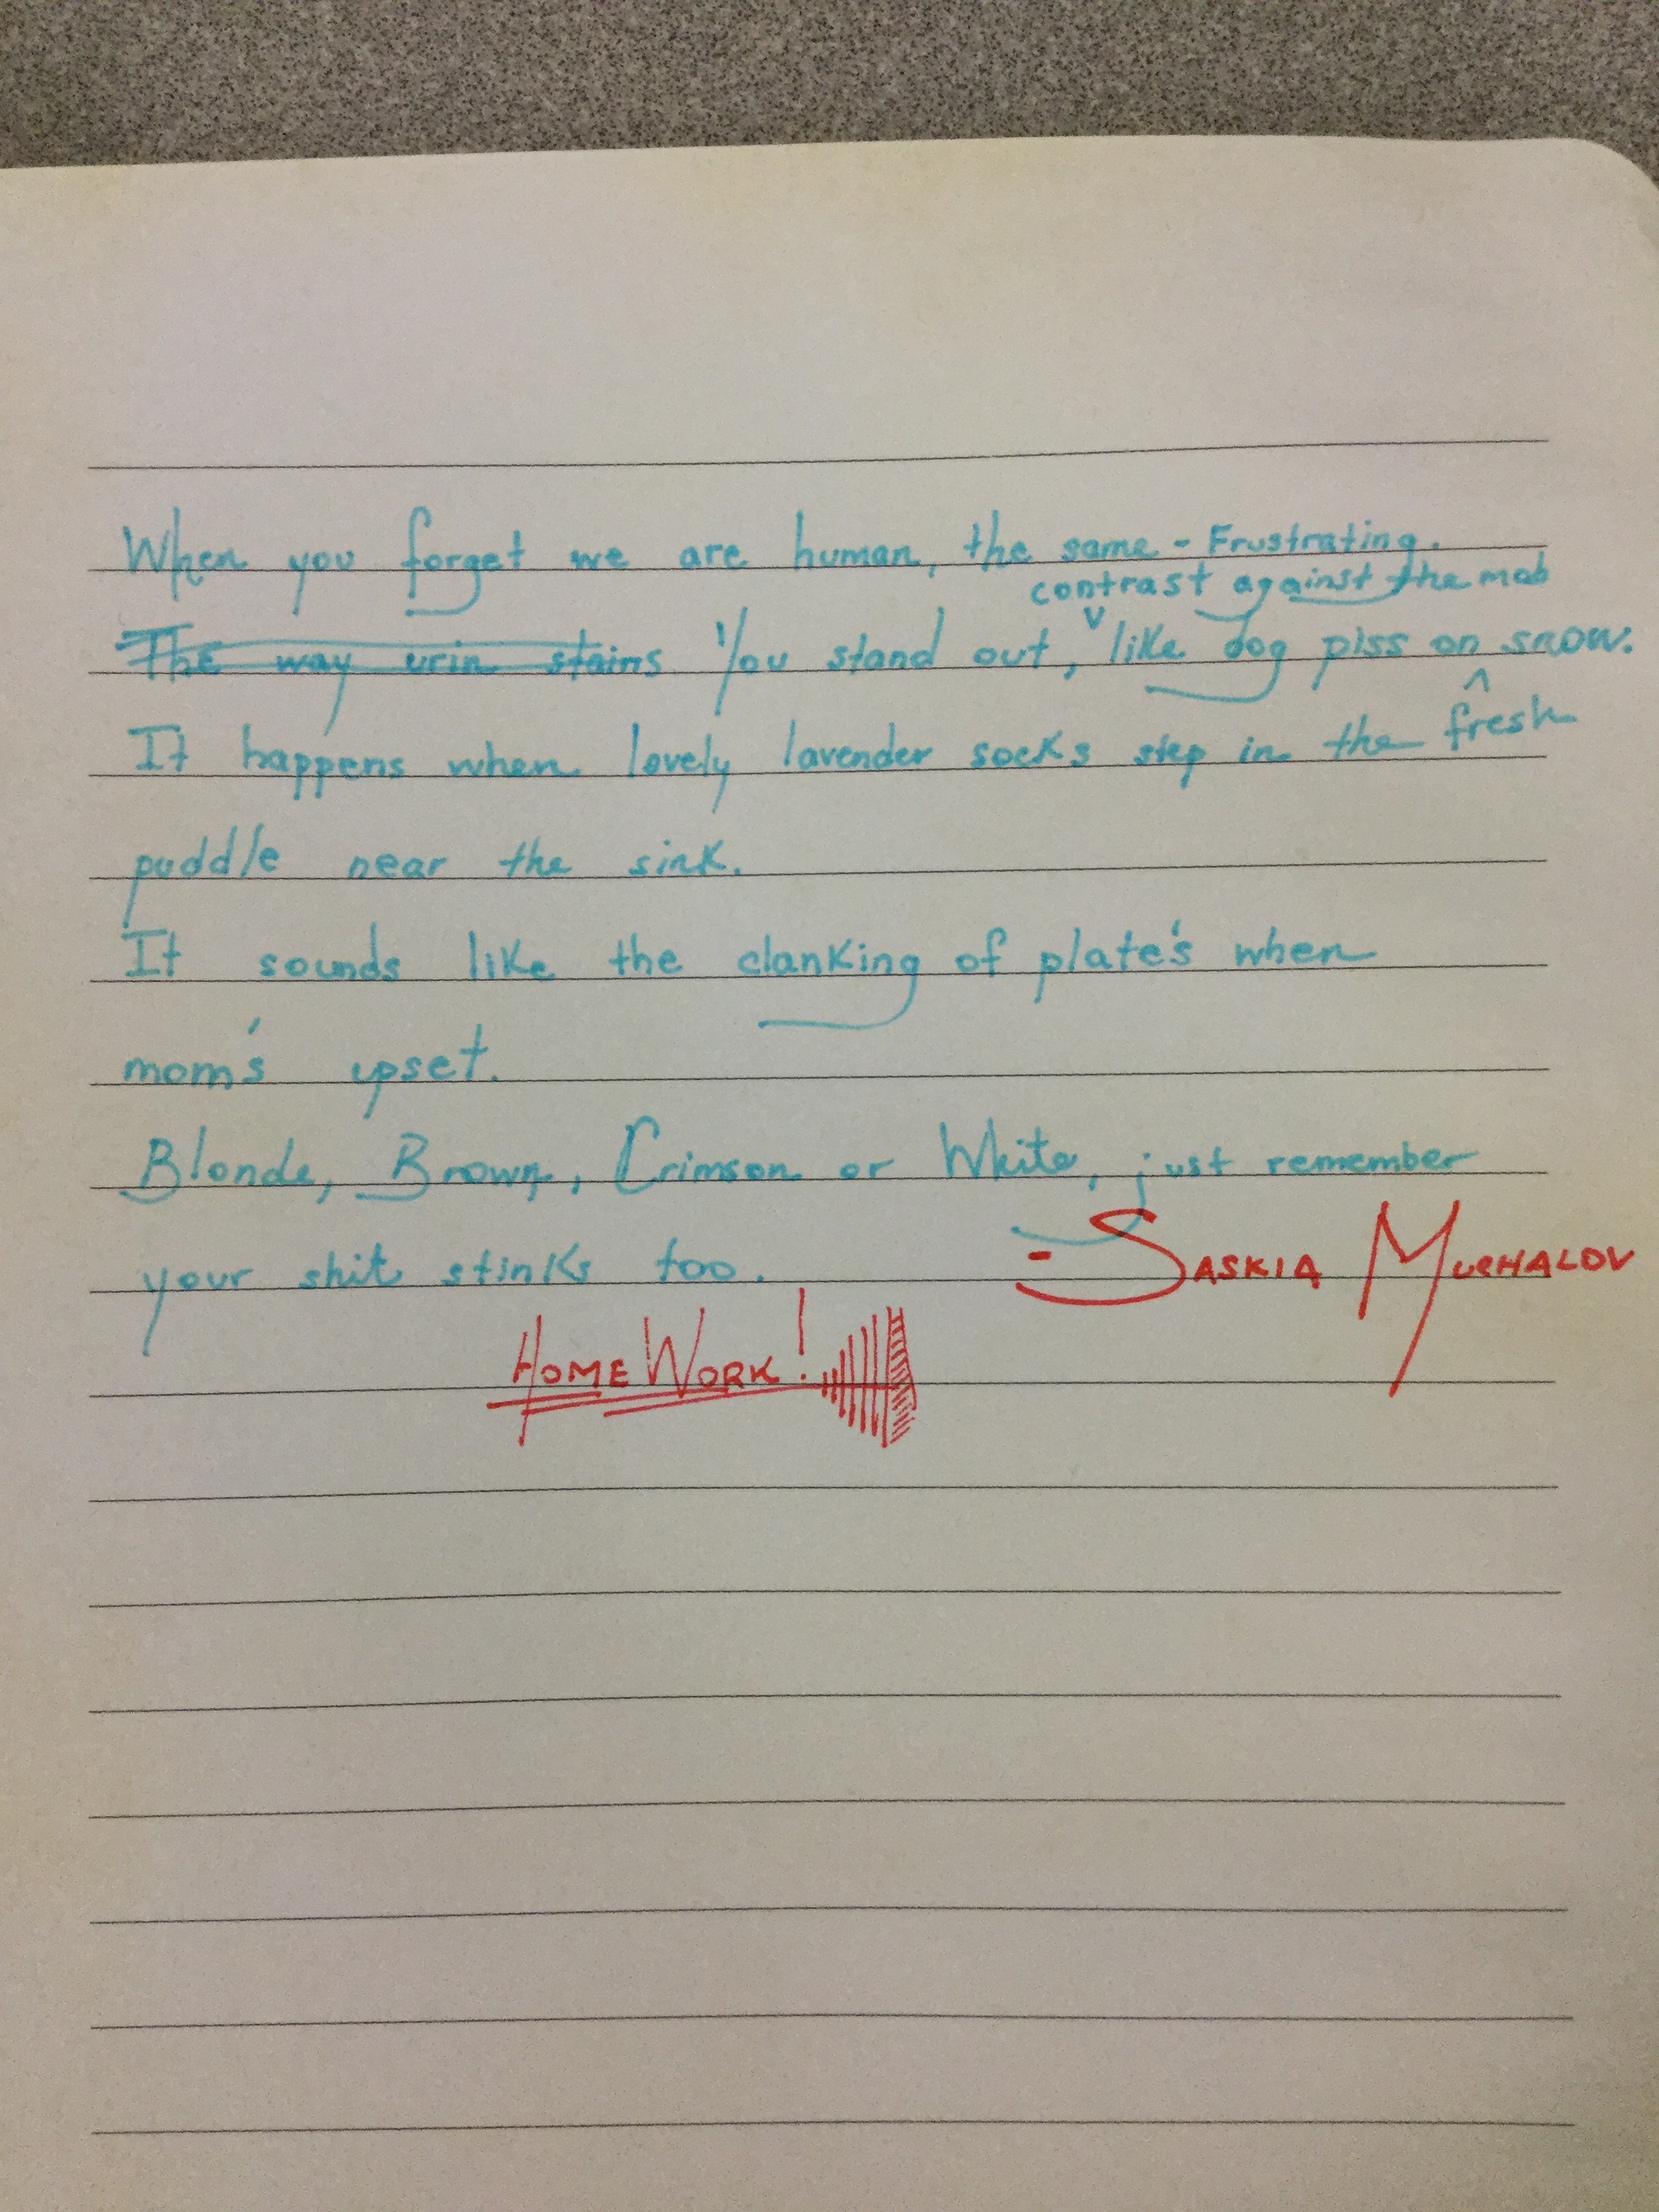 When you forget we are human, the same - Frustrating.
contrast against the mob
The way urin stains You stand out, like dog piss on snow.
It happens when lovely lavender socks step in the fresh
puddle near the sink.
It sounds like the clanking of plate's when
mom's upset.
Blonde, Brown, Crimson or White, just remember
your shit stinks too. - SASKIA
HOME WORK!